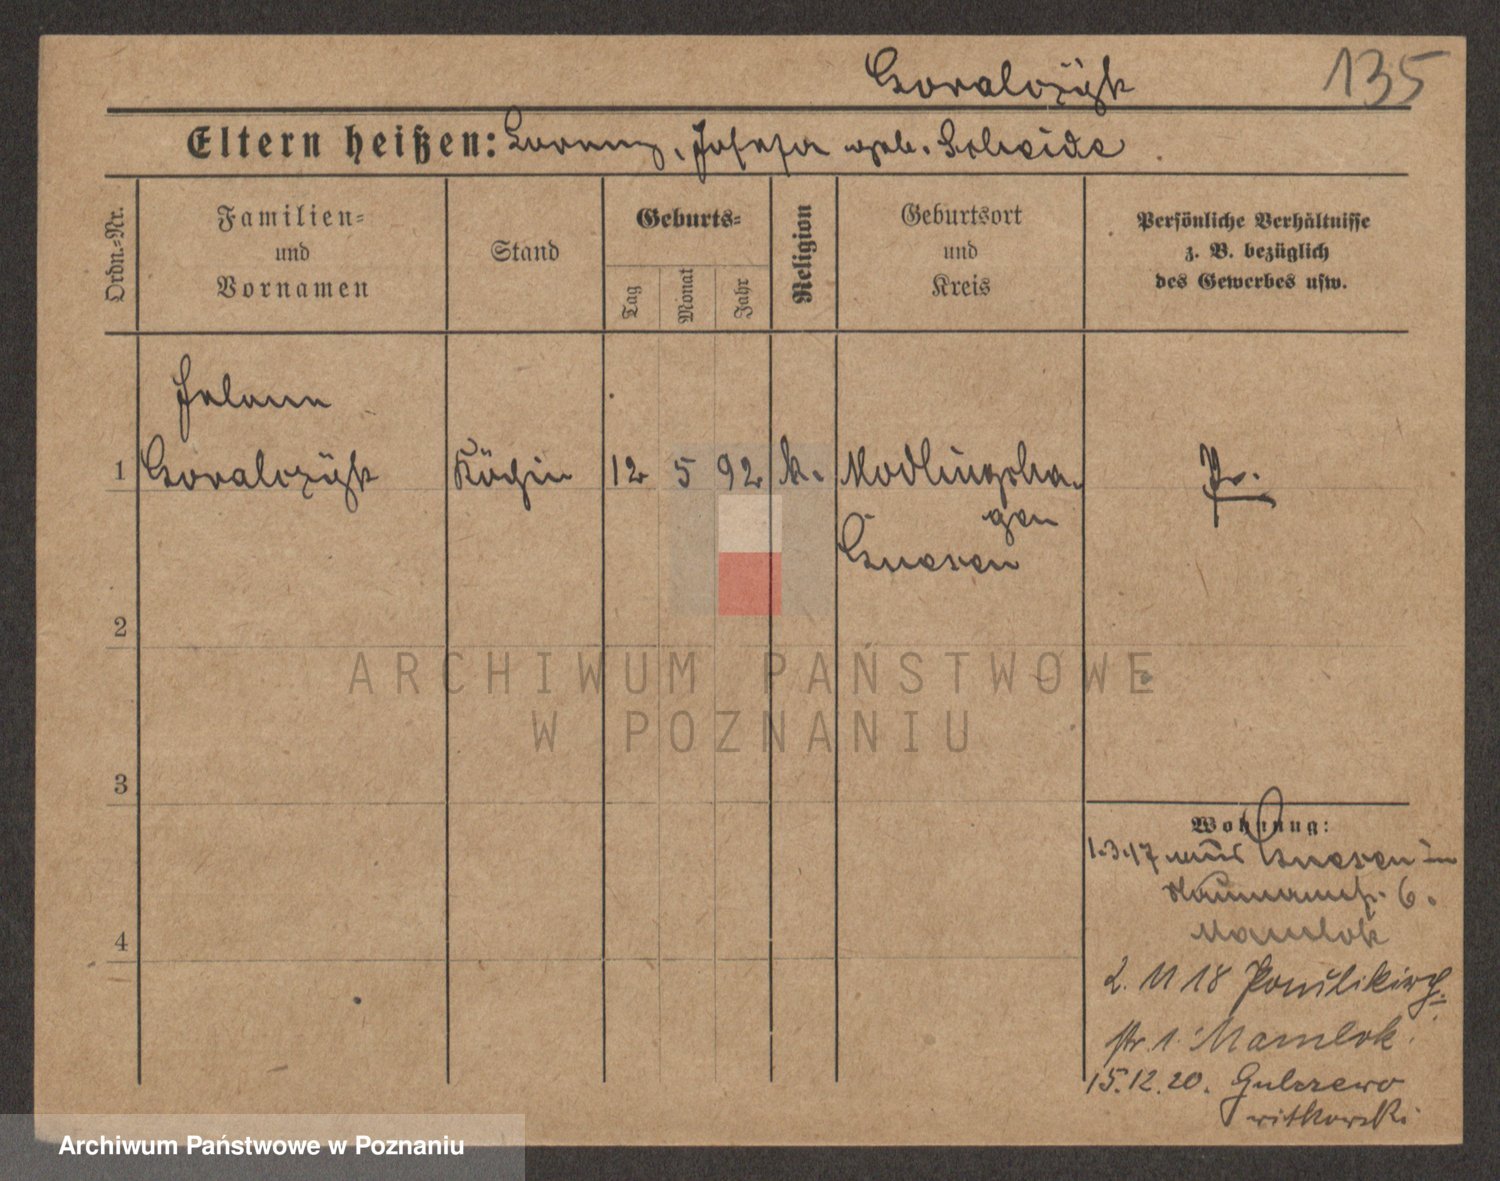 Goralczyk 135
Eltern heißen: Lorenz, Josefa geb.
Ordn.=Nr.
Familien=
und
Vornamen
Stand
Geburts=
Tag
Monat
Jahr
Religion
Geburtsort
und
Kreis
Persönliche Verhältnisse
z. B. bezüglich
des Gewerbes usw.
Johann
1 Goralczyk Köchin 12 5 92 k. Modlingsha-
gen
Gnesen
Pr.
2
ARCHIWUM PAŃSTWOWE
W POZNANIU
3
Wohnung:
1.3.17 aus Gnesen in
6.
Mamlok
4
2. 11 18 Paulikirch=
str. 1. Mamlok.
15.12.20. Gulczewo
witkowski
Archiwum Państwowe w Poznaniu